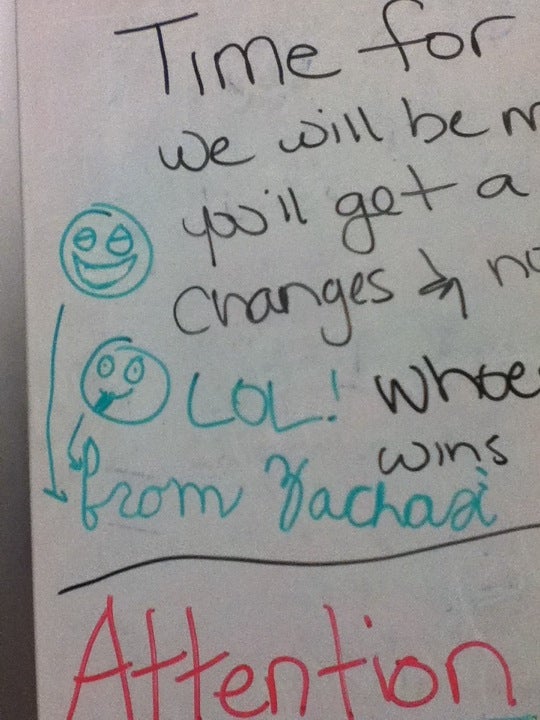 Time for
we will be
you'll get a
changes &
LOL! whoe
wins
from
Attention